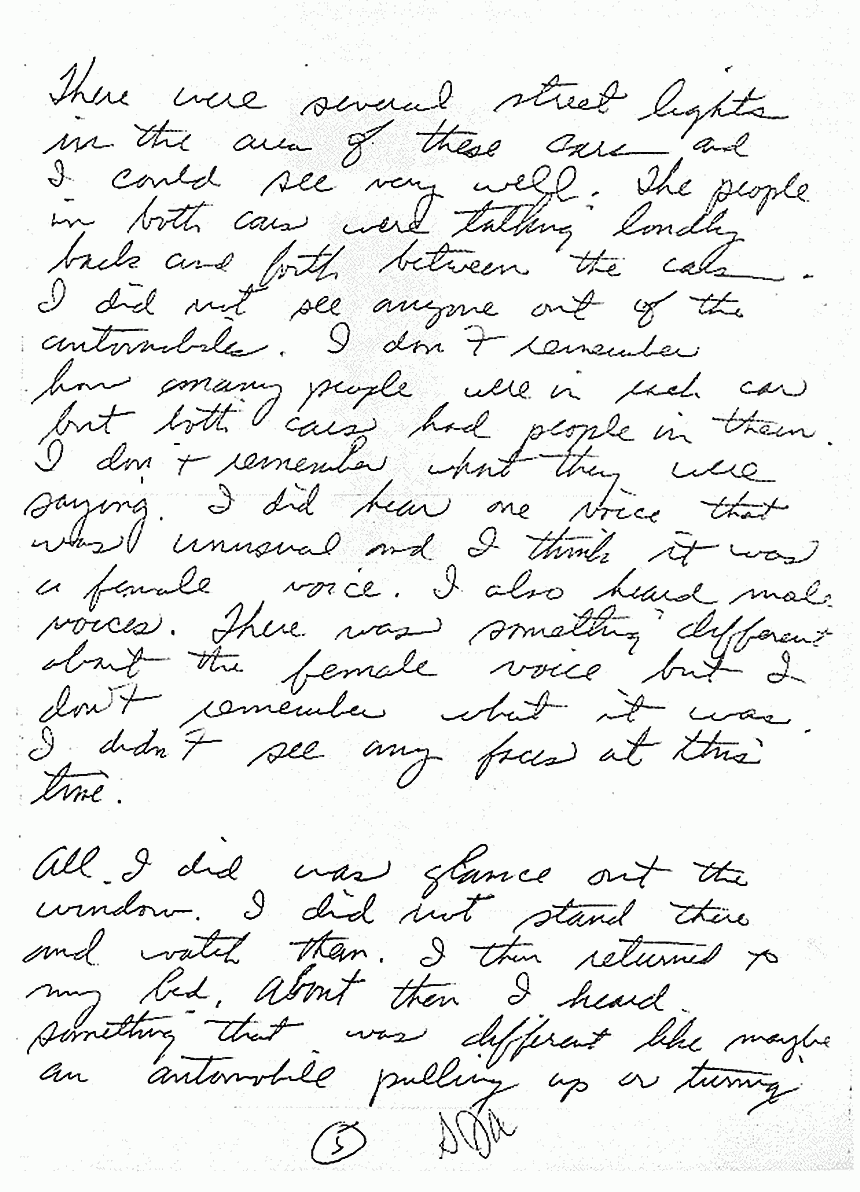 There were several street lights
in the area of these cars and
I could see very well. The people
in both cars were talking loudly
back and forth between the cars.
I did not see anyone out of the
automobiles. I don't remember
how many people were in each car
but both cars had people in them.
I don't remember what they were
saying. I did hear one voice that
was unusual and I think it was
a female voice. I also heard male
voices. There was something different
about the female voice but I
don't remember what it was.
I didn't see any faces at this
time.
All I did was glance out the
window. I did not stand there
and watch them. I then returned to
my bed. About then I heard
something that was different like maybe
an automobile pulling up or turning
5